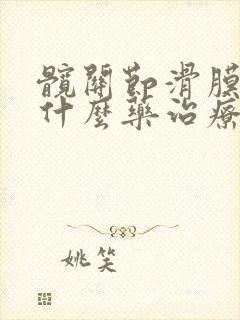 髖關節滑膜
什麼藥治療
姚笑